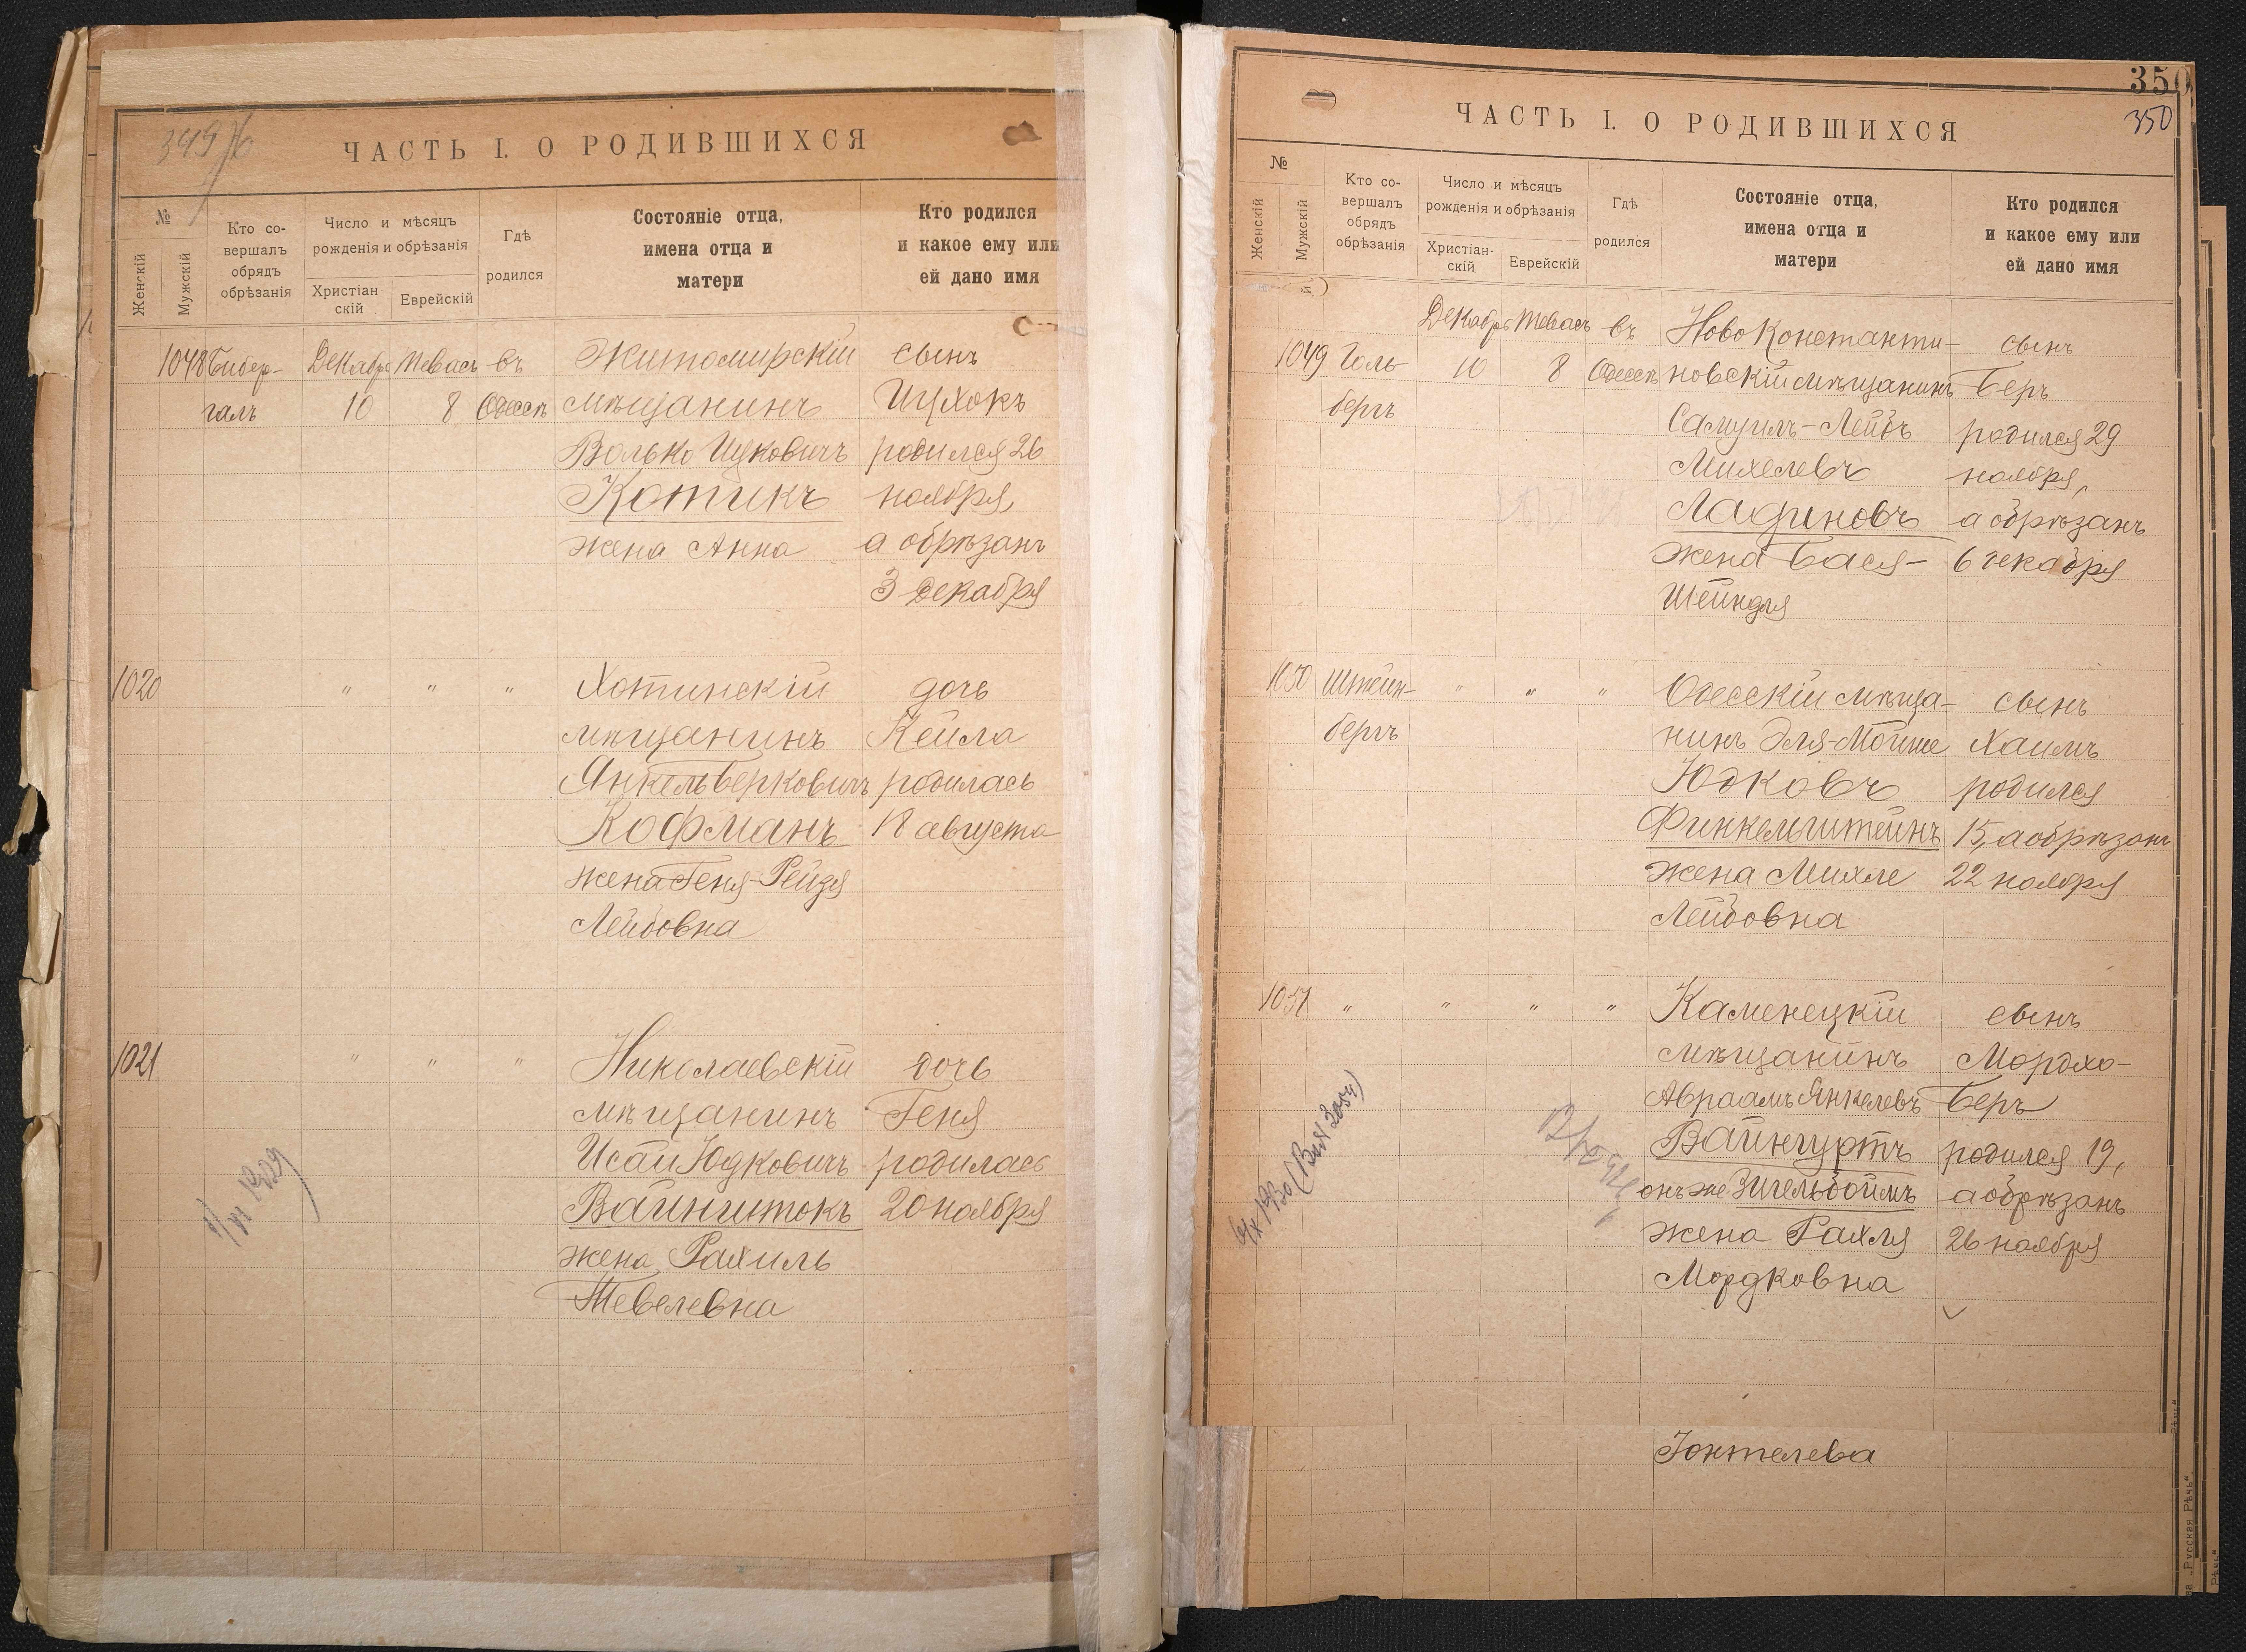 349
ЧАСТЬ I. О РОДИВШИХСЯ
№
Женскій
Мужскій
Кто со-
вершалъ
обрядъ
обрѣзанія
Число и мѣсяцъ
рожденія и обрѣзанія
Христіан
скій
Еврейскій
Гдѣ
родился
Состояніе отца,
имена отца и
матери
Кто родился
и какое ему или
ей дано имя
1048 Бибер- Декабрь Тевасъ въ Житомирскій сынъ
галъ 10 8 Одессѣ мѣщанинъ Ицхокъ
Волько Ицковичъ родился 26
Котикъ ноября,
жена Анна а обрѣзанъ
3 декабря
1020 " " " Хотинскій дочь
мѣщанинъ Кейла
Янкель Берковичъ родилась
Кофманъ 18 августа
жена Геня-Рейзя
Лейбовна
1021 " " " Николаевскій дочь
мѣщанинъ Геня
Исай Юдковичъ родилась
Вайнштокъ 20 ноября
жена Рахиль
Тевелевна
350
350
ЧАСТЬ I. О РОДИВШИХСЯ
№
Женскій
Мужскій
Кто со-
вершалъ
обрядъ
обрѣзанія
Число и мѣсяцъ
рожденія и обрѣзанія
Христіан-
скій
Еврейскій
Гдѣ
родился
Состояніе отца,
имена отца и
матери
Кто родился
и какое ему или
ей дано имя
Декабрь Тевасъ въ Новоконстанти- сынъ
1049 Голь- 10 8 Одессѣ новскій мѣщанинъ Беръ
бергъ Самуилъ-Лейбъ родился 29
Михелевъ ноября,
Ладиновъ а обрѣзанъ
жена Бася- 6 декабря
Шейндля
1050 Штейн- " " " Одесскій мѣща- сынъ
бергъ нинъ Эля-Мойше Хаимъ
Юдковъ родился
Финкельштейнъ 15, а обрѣзанъ
жена Михле 22 ноября
Лейбовна
1051 " " " " Каменецкій сынъ
мѣщанинъ Мордхо-
Авраамъ Янкелевъ Беръ
Вайнгуртъ родился 19,
онъ же Зигельбоймъ а обрѣзанъ
жена Рахля 26 ноября
Мордковна
Іонтелева
„Русская Рѣчь“